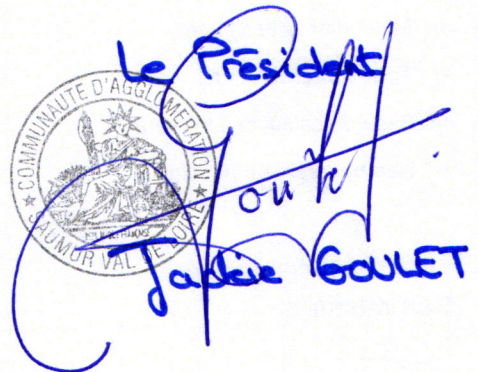 Le Président
COMMUNAUTE D'AGGLOMERATION
SAUMUR VAL DE LOIRE
Jackie GOULET